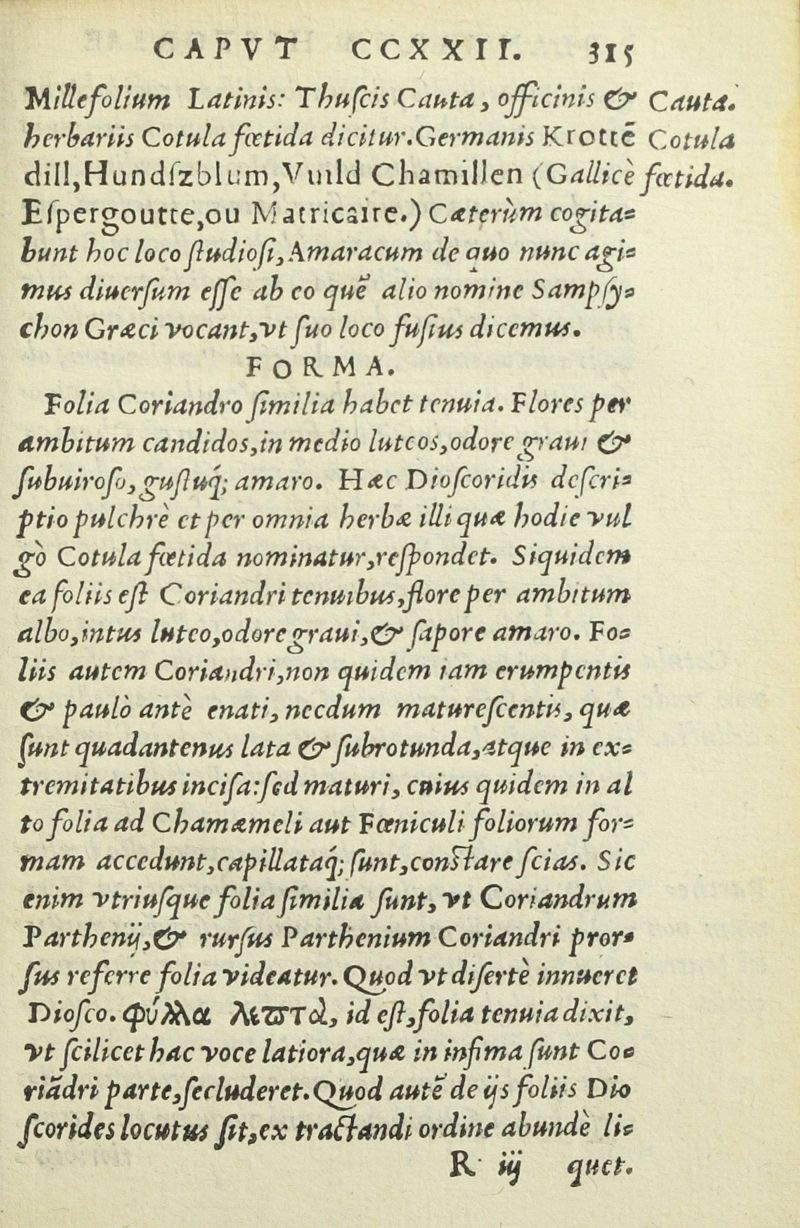 CAPVT CCXXII. 315
Millefolium Latinis: Thuſcis Cauta, officinis & Cauta.
herbariis Cotula fœtida dicitur. Germanis Krottē Cotula
dill, Hundſzblum, Vuild Chamillen (Gallicè fœtida.
Eſpergoutte, ou Matricaire.) Cæterùm cogita=
bunt hoc loco ſtudioſi, Amaracum de quo nunc agi=
mus diuerſum eſſe ab eo quē alio nomine Sampſy=
chon Græci vocant, vt ſuo loco fuſius dicemus.
FORMA.
Folia Coriandro ſimilia habet tenuia. Flores per
ambitum candidos, in medio luteos, odore graui &
ſubuiroſo, guſtuq́; amaro. Hæc Dioſcoridis deſcri=
ptio pulchrè et per omnia herbæ illi quæ hodie vul
gò Cotula fœtida nominatur, reſpondet. Siquidem
ea foliis eſt Coriandri tenuibus, flore per ambitum
albo, intus luteo, odore graui, & ſapore amaro. Fo=
liis autem Coriandri, non quidem iam erumpentis
& paulò antè enati, necdum matureſcentis, quæ
ſunt quadantenus lata & ſubrotunda, atque in ex=
tremitatibus inciſa: ſed maturi, cuius quidem in al
to folia ad Chamæmeli aut Fœniculi foliorum for=
mam accedunt, capillataq́; ſunt, conſtare ſcias. Sic
enim vtriuſque folia ſimilia ſunt, vt Coriandrum
Parthenij, & rurſus Parthenium Coriandri pror=
ſus referre folia videatur. Quod vt diſertè innueret
Dioſco. φύλλα λεπτὰ, id eſt, folia tenuia dixit,
vt ſcilicet hac voce latiora, quæ in infima ſunt Co=
riādri parte, ſecluderet. Quod autē de ijs foliis Dio
ſcorides locutus ſit, ex tractandi ordine abundè li=
R iij quet.